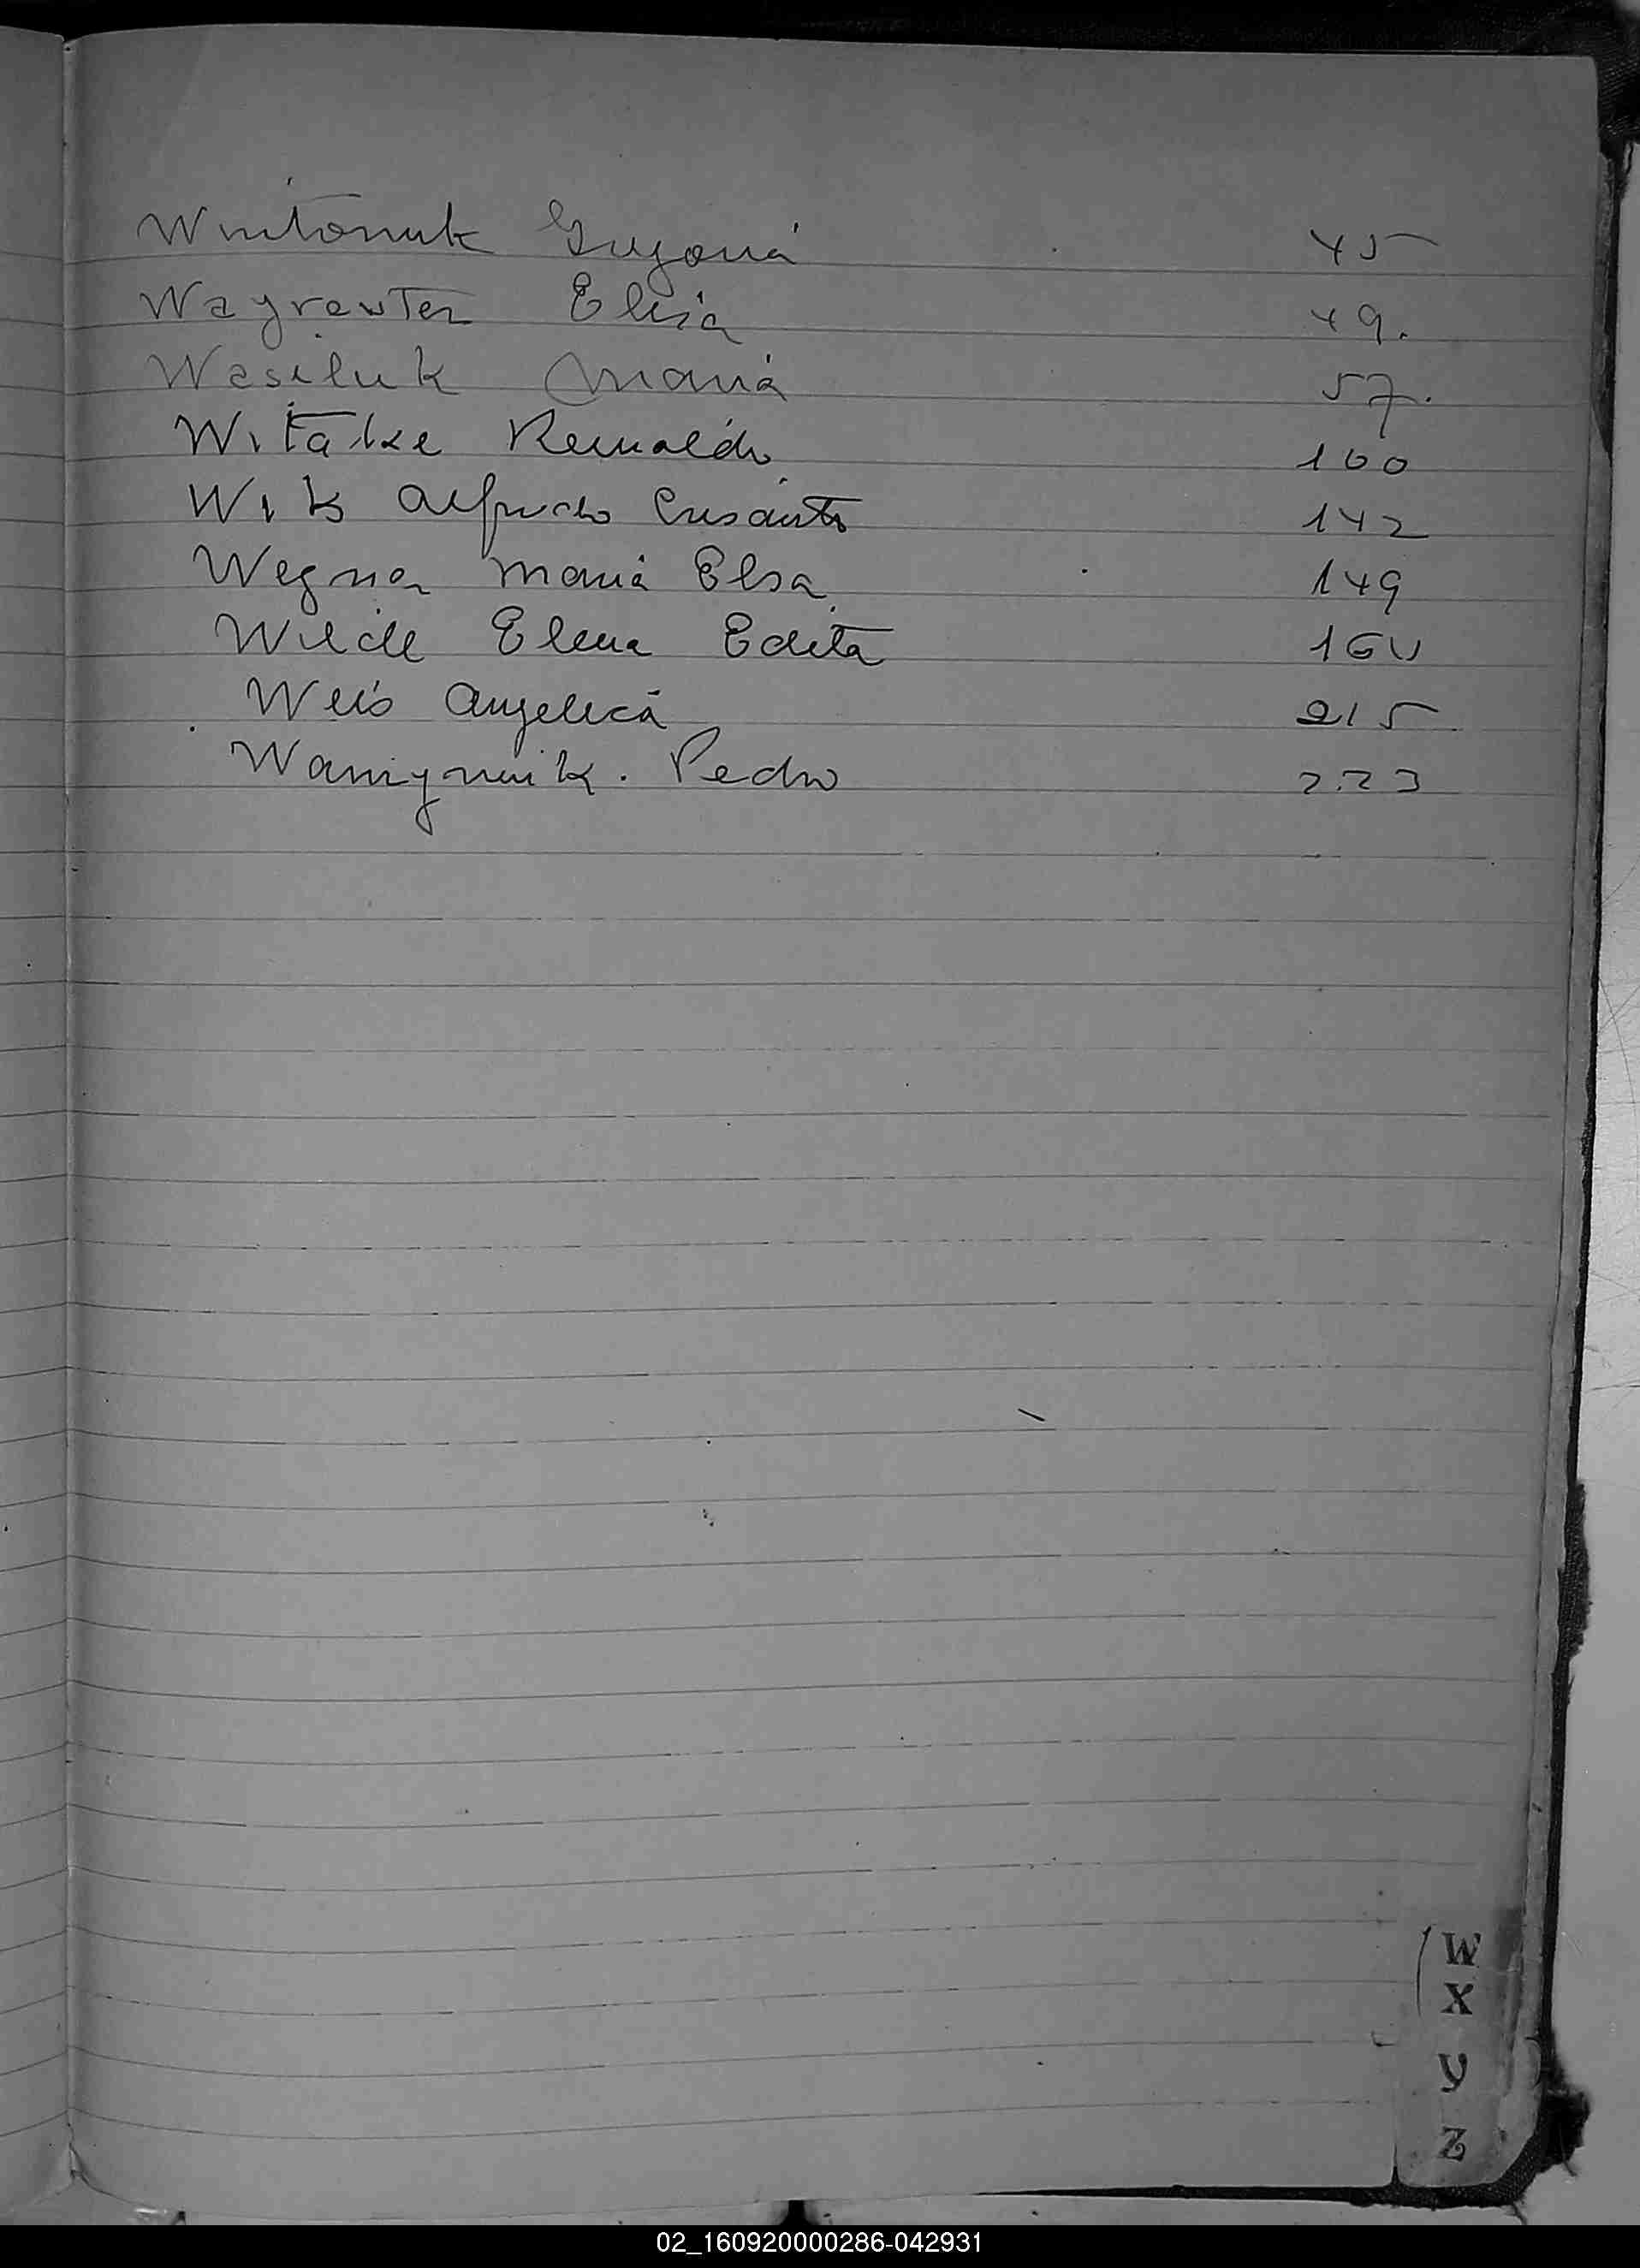 Wintoniuk Gregoria 45
Wagreuter Elisa 49.
Wasiluk Maria 57.
Witake Reinaldo 100
Wik Alfredo Crisanto 142
Wegner Maria Elsa 149
Wilde Elena Edita 160
Weis Angelica 215
Pedro 223
W
X
Y
Z
02_160920000286-042931